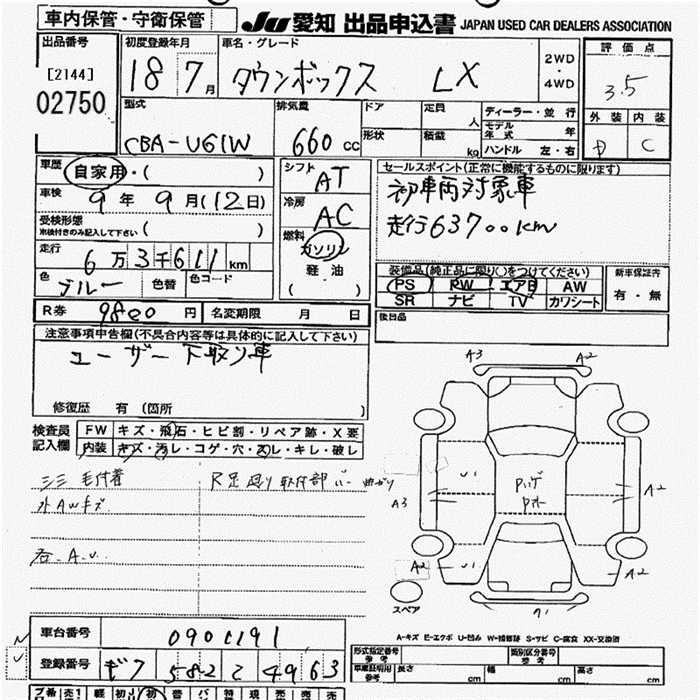 車内保管・守衛保管
JU 愛知 出品申込書 JAPAN USED CAR DEALERS ASSOCIATION
出品番号
[2144]
02750
初度登録年月
18 7月
車名・グレード
タウンボックス LX
2WD
・
4WD
評価点
3.5
外装 内装
D C
型式
CBA-U61W
排気量
660 cc
ドア
定員 人
形状
積載 kg
ディーラー・並行
モデル年式 年
ハンドル 左・右
車歴
自家用・( )
車検
9年 9月(12日)
受検形態
※検付きのみ記入して下さい ( )
走行
6万3千611km
色
ブルー
色替
色コード
シフト
AT
冷房
AC
燃料
ガソリン
軽油
( )
セールスポイント(正常に機能するものに限ります)
初車両対象車
走行63700km
装備品(純正品に限り○をつけてください)
PS PW エアB AW
SR ナビ TV カワシート
新車保証書
有・無
後日品
R券 9800円
名変期限 月 日
注意事項申告欄(不具合内容等は具体的に記入して下さい)
ユーザー下取り車
修復歴 有(箇所 )
検査員
記入欄
FW キズ・飛石・ヒビ割・リペア跡・X要
内装 キズ・汚レ・コゲ・穴・スレ・キレ・破レ
シミ 毛付着
外AWキズ
R足廻り取付部
A3 A2
U1
A3
A2
A2
U1
A2
A1
スペア
A-キズ E-エクボ U-凹み W-補修跡 S-サビ C-腐食 XX-交換済
車台番号
0901191
登録番号
ギフ 582 と 4963
形式指定番号
参考
類別区分番号
参考
車庫証明用
参考
長さ cm
幅 cm
高さ cm